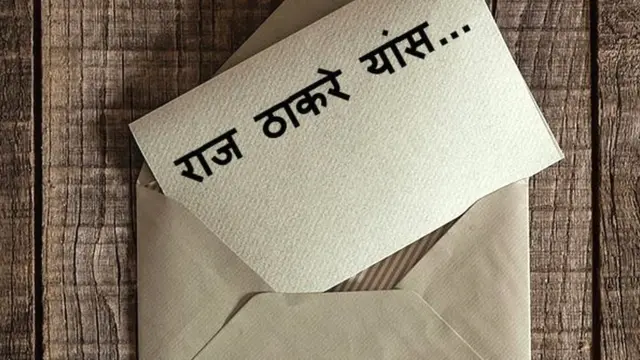 राज ठाकरे यांस...